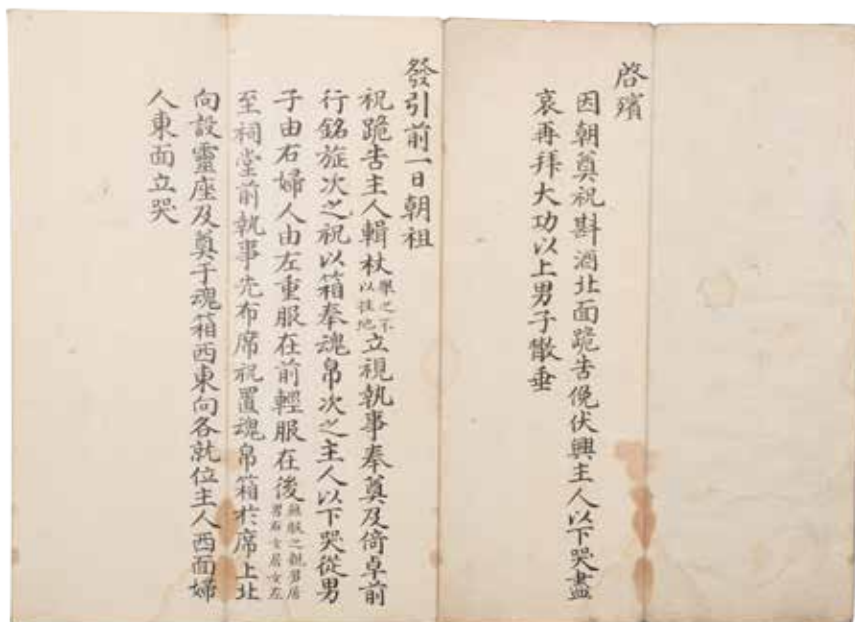 啓殯
因朝奠祝斟酒北面跪告俛伏興主人以下哭盡
哀再拜大功以上男子散垂
發引前一日朝祖
祝跪告主人輯杖舉之不以拄地立視執事奉奠及倚卓前
行銘旌次之祝以箱奉魂帛次之主人以下哭從男
子由右婦人由左重服在前輕服在後無服之親男居男右女居女左
至祠堂前執事先布席祝置魂帛箱於席上北
向設靈座及奠于魂箱西東向各就位主人西面婦
人東面立哭